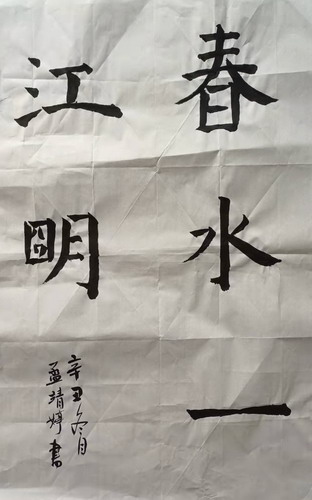 春水一
江明
辛丑冬月
孟靖婷书